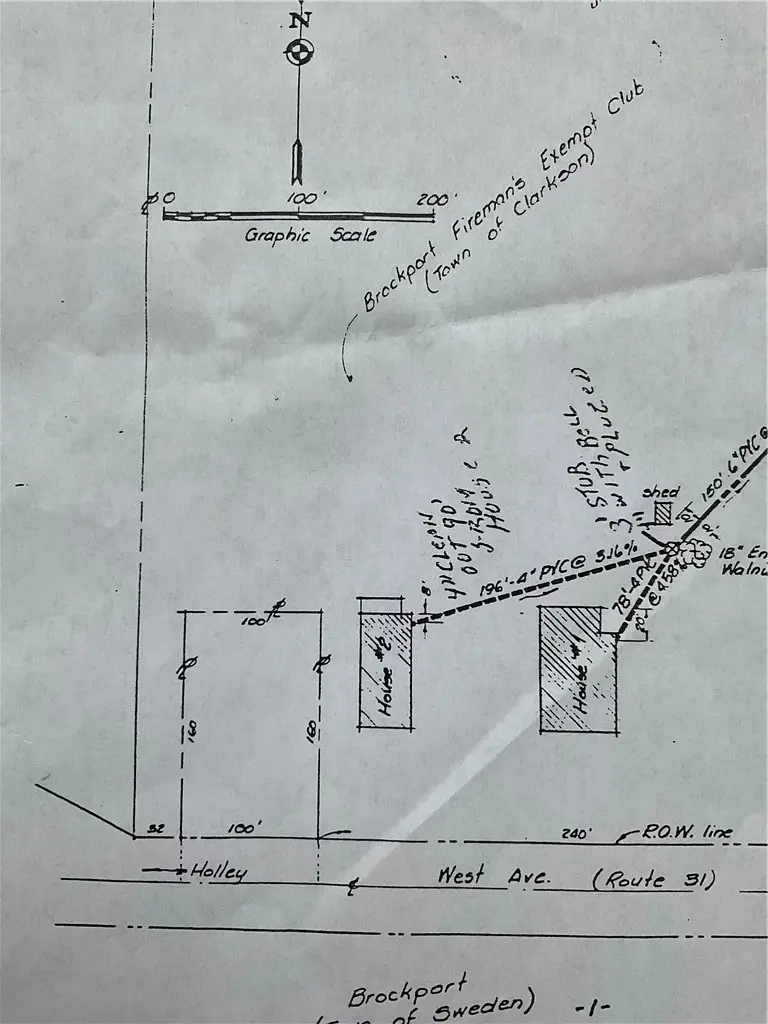 N
0 100' 200'
Graphic Scale
Brockport Fireman's Exempt Club
(Town of Clarkson)
4" CLEAN
OUT 90'
HOUSE 2
STUB BELL
WITH PLUG
shed
150' 6" PVC @
18" En
Walnu
196'-4" PVC @ 3.16%
78'-4" PVC
@ 4.58%
8'
20'
100'
160
160
House #2
House #1
32 100' 240' R.O.W. line
Holley West Ave. (Route 31)
Brockport
of Sweden) -1-